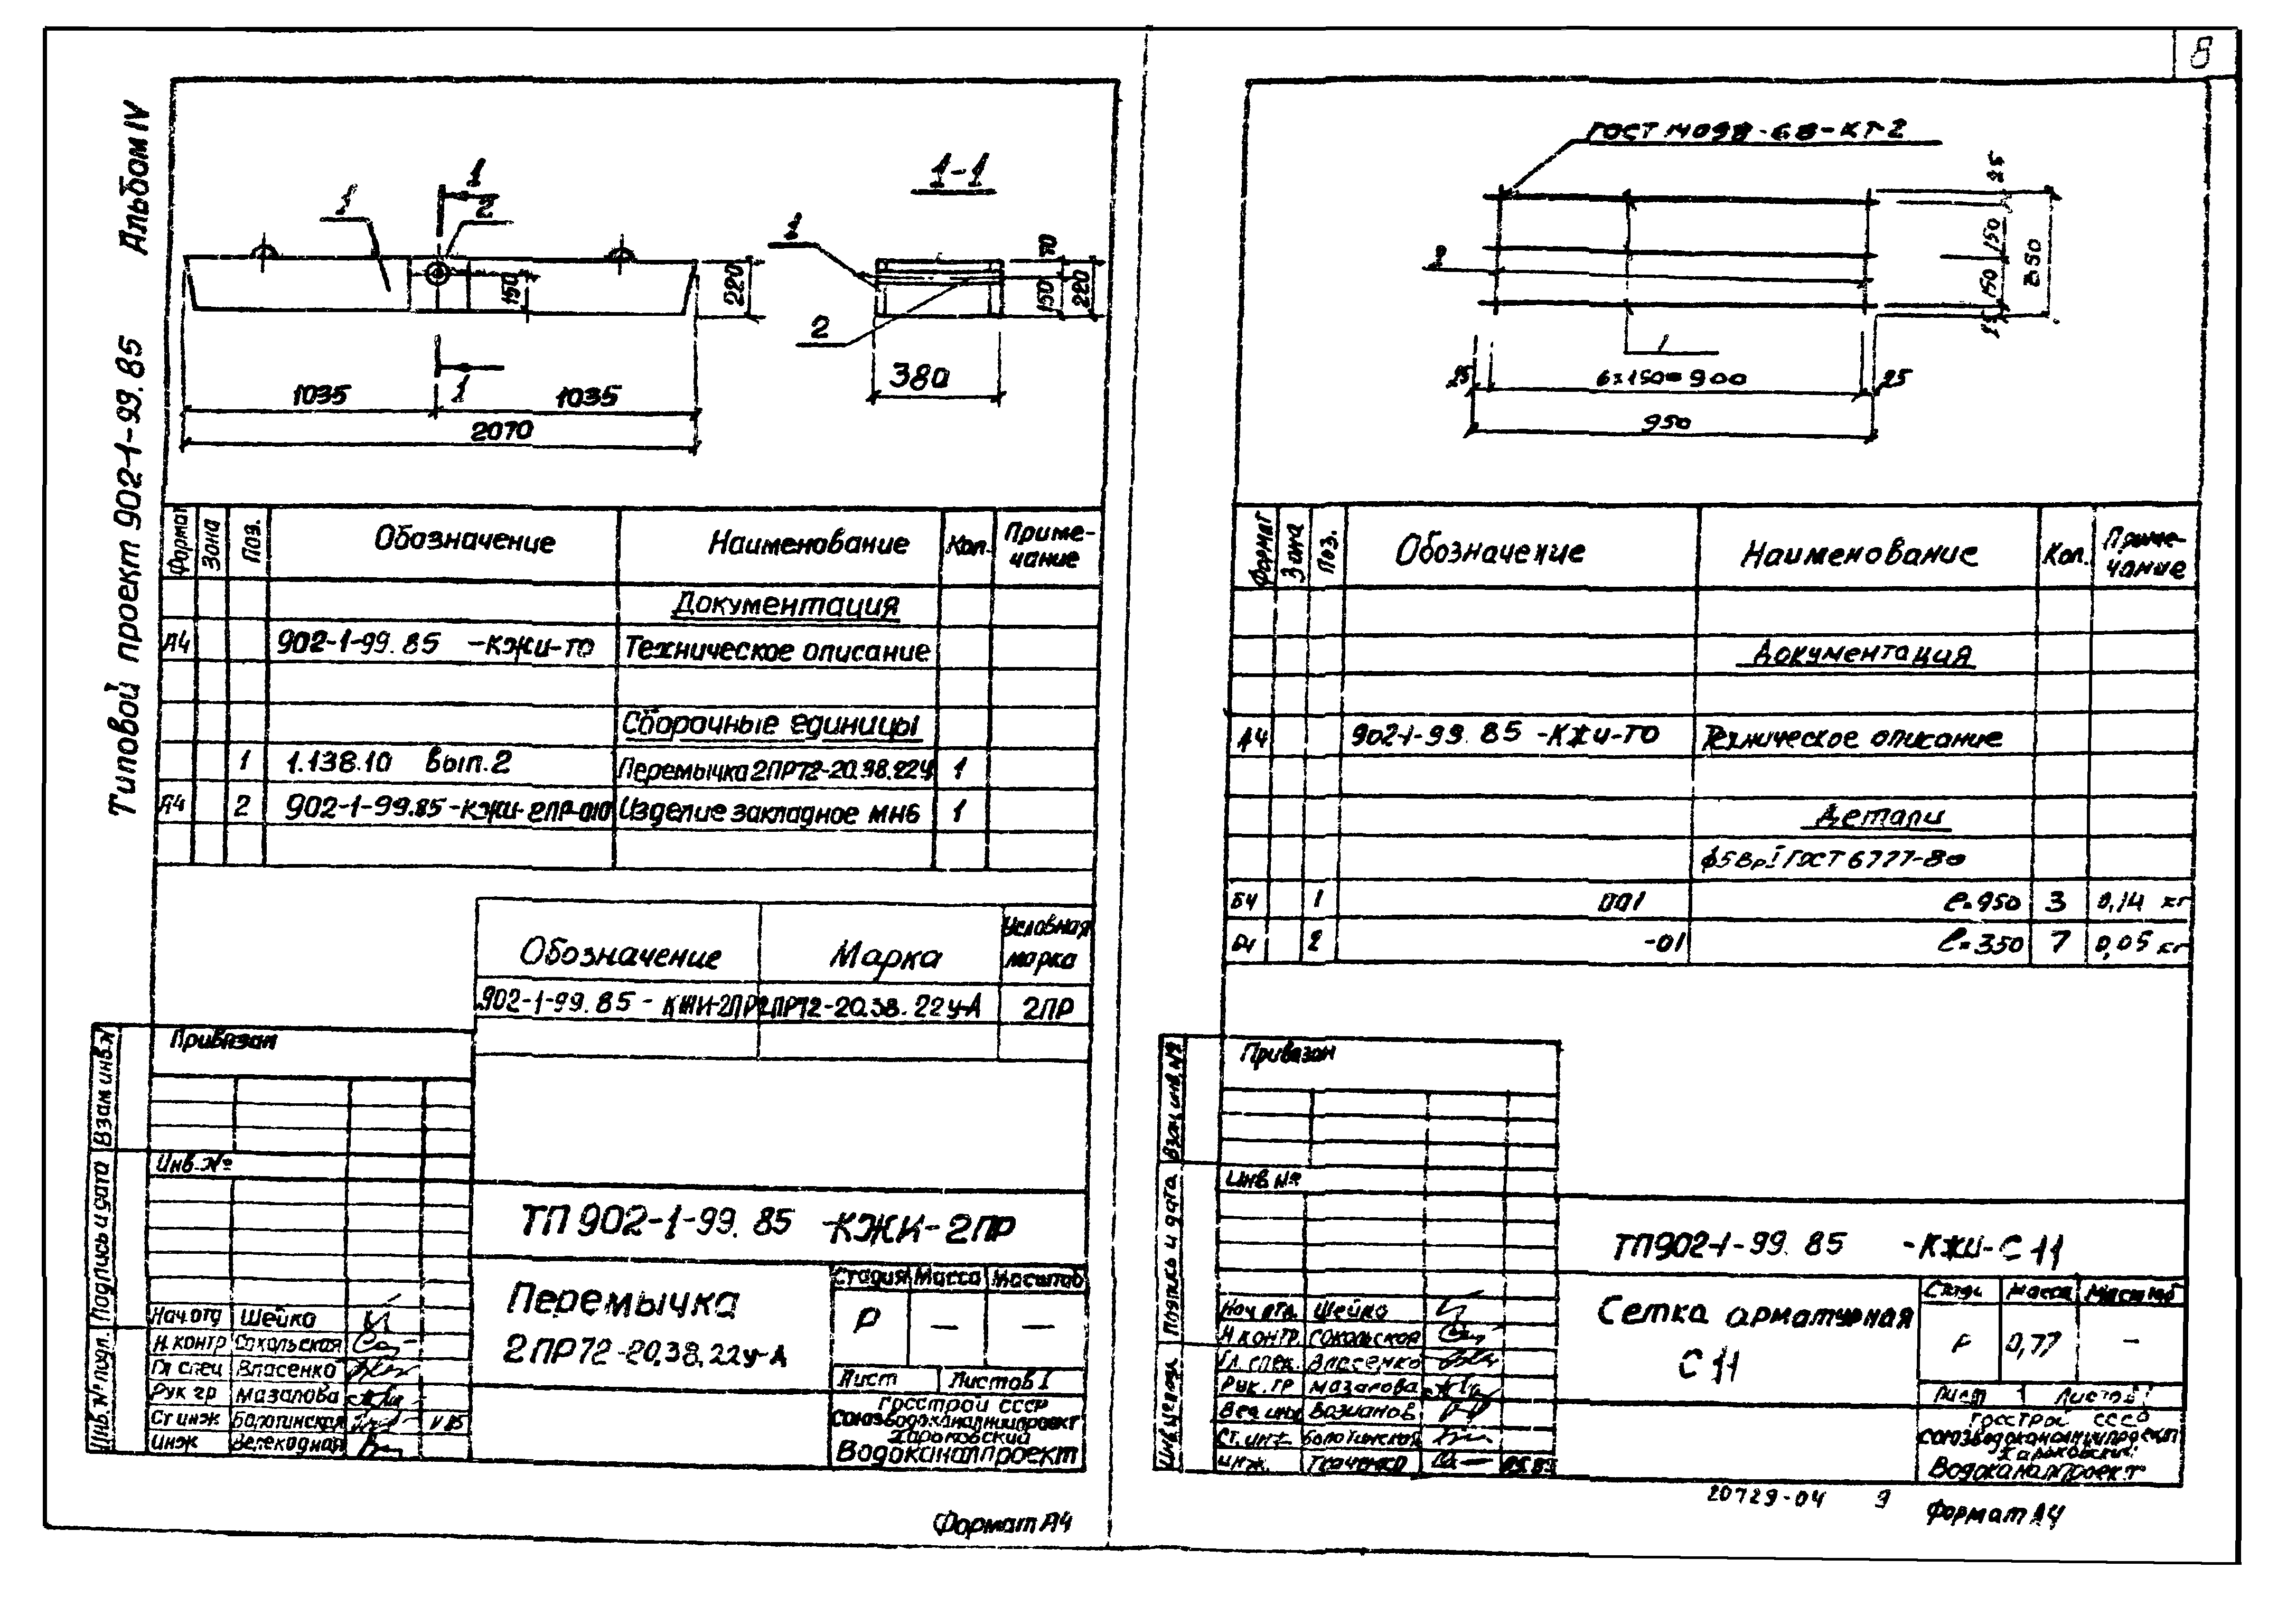 8
Альбом IV
Типовой проект 902-1-99.85
1
1
2
150
220
1
1035
1035
2070
1-1
1
2
70
150
220
380
Формат
Зона
Поз.
Обозначение
Наименование
Кол.
Приме-
чание
Документация
А4 902-1-99.85 -КЖИ-ТО Техническое описание
Сборочные единицы
1 1.138.10 вып.2 Перемычка 2ПР72-20.38.22У 1
А4 2 902-1-99.85-КЖИ-2ПР-010 Изделие закладное МН6 1
Обозначение Марка Условная
марка
902-1-99.85-КЖИ-2ПР 2ПР72-20.38.22у-А 2ПР
Привязан
Инв.№
Взам инв.№
Подпись и дата
Инв.№ подл.
ТП 902-1-99.85 -КЖИ-2ПР
Перемычка
2ПР72-20.38.22у-А
Стадия Масса Масштаб
Р — —
Лист Листов 1
Госстрой СССР
Союзводоканалниипроект
Харьковский
Водоканалпроект
Нач.отд Шейко
Н.контр Сокольская
Гл спец Власенко
Рук гр Мазалова
Ст инж Болотинская V 85
Инж
Формат А4
ГОСТ 14098-68-КТ-2
25
150
150
25
350
2
1
25
6х150=900
25
950
Формат
Зона
Поз.
Обозначение
Наименование
Кол.
Приме-
чание
Документация
А4 902-1-99.85 -КЖИ-ТО Техническое описание
Детали
ф5ВрI ГОСТ 6727-80
Б4 1 001 ℓ=950 3 0,14 кг
Б4 2 -01 ℓ=350 7 0,05 кг
Привязан
Инв №
Взам.инв.№
Подпись и дата
Инв.№ подл.
ТП902-1-99.85 -КЖИ-С11
Сетка арматурная
С11
Стади Масса Масштаб
Р 0,77 —
Лист 1 Листов 1
Госстрой СССР
Союзводоканалниипроект
Харьковский
Водоканалпроект
Нач.отд. Шейко
Н.контр. Сокольская
Гл.спец. Власенко
Рук.гр Мазалова
Вед.инж
Ст.инж Болотинская
инж. Ткаченко
20729-04 9
Формат А4